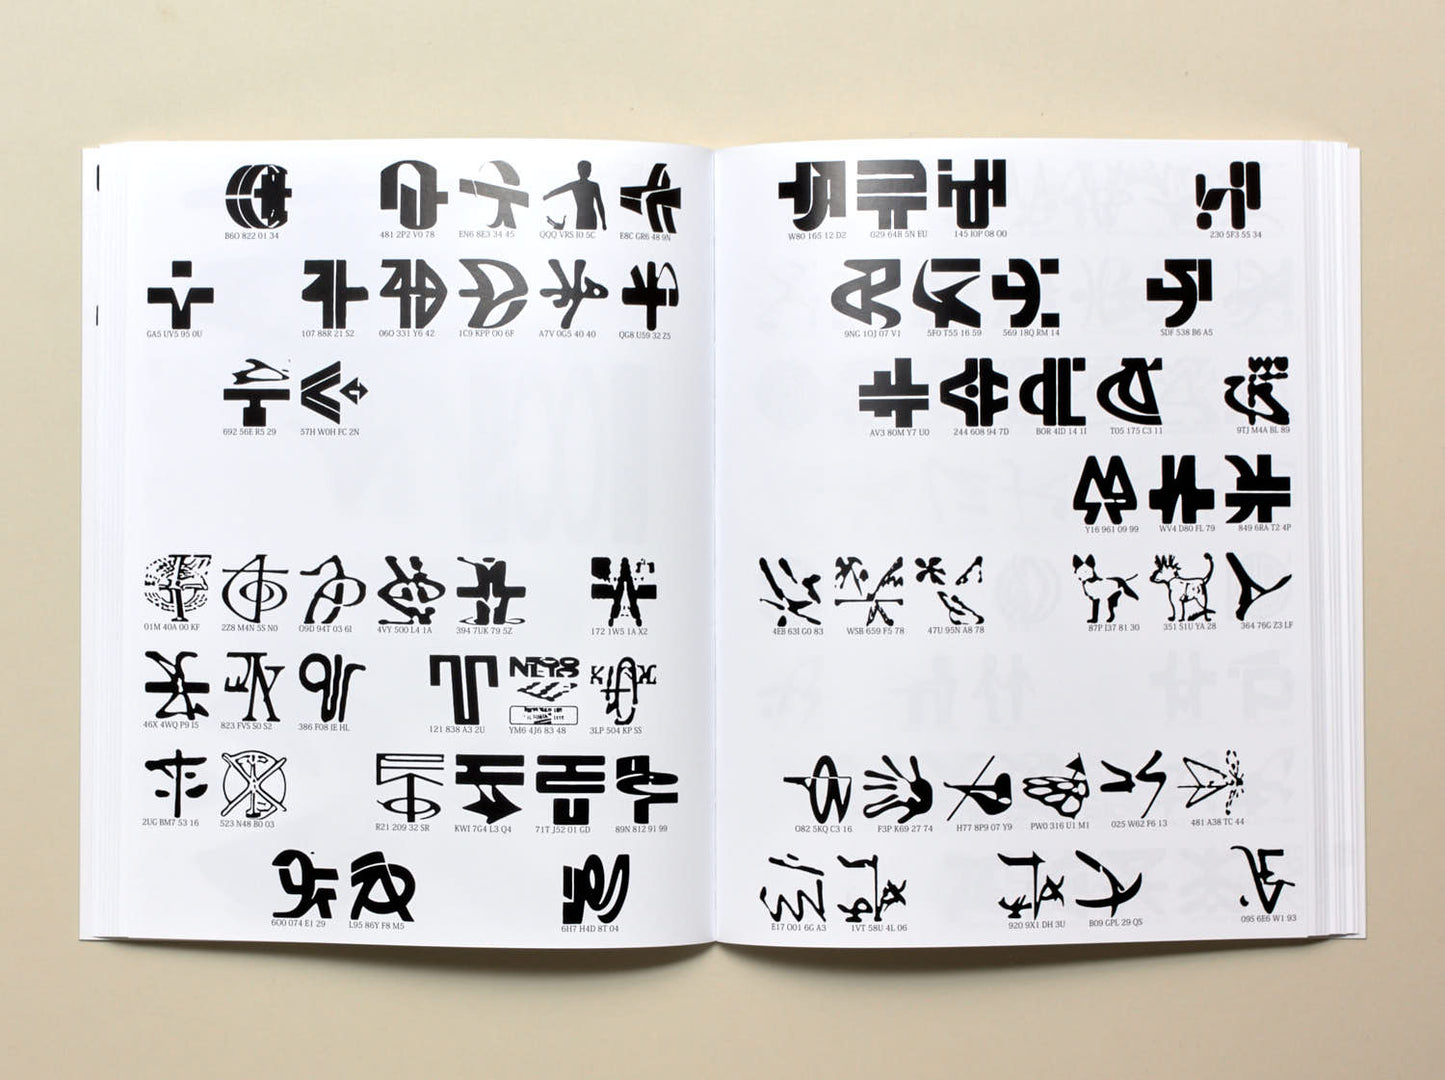 B6O 822 01 34
481 2P2 V0 78
EN6 8E3 34 45
QQQ VRS I0 5C
E8C GR6 48 9N
GA5 UV5 95 0U
107 88R 21 S2
06O 331 Y6 42
1C9 KPP O0 6F
A7V 0G5 40 40
QG8 U59 32 Z5
692 56E R5 29
57H W0H FC 2N
01M 40A 00 KF
2Z8 M4N 5S N0
O9D 94T 03 6I
4VY 500 L4 1A
394 7UK 79 5Z
172 1W5 1A X2
46X 4WQ P9 I5
823 FVS 50 52
386 F08 IE HL
121 838 A3 2U
YM6 4J6 83 48
3LP 504 KP SS
2UG BM7 53 16
523 N48 B0 03
R21 209 32 SR
KWI 7G4 L3 Q4
71T J52 01 GD
89N 812 91 99
6O0 074 E1 29
L95 86Y F8 M5
6H7 H4D 8T 04
W80 165 12 D2
029 64B 5N EU
145 I0P 08 O0
230 5F3 55 34
9NG 1OJ 07 V1
5F0 T55 16 59
569 18Q RM 14
5DF 538 B6 A5
AV3 80M Y7 U0
244 608 94 7D
BOR 4ID 14 1I
T05 175 C3 11
9TJ M4A BL 89
Y16 961 09 99
WV4 D80 FL 79
849 6RA T2 4P
4EB 63I G0 83
W5B 659 F5 78
47U 95N A8 78
87P I37 81 30
351 51U YA 28
364 76G Z3 LF
O82 5KQ C3 16
F3P K69 27 74
H77 8P9 07 Y9
PW0 316 U1 M1
025 W62 F6 13
481 A38 TC 44
E17 O01 6G A3
1VT 58U 4L 06
920 9X1 DH 3U
B09 GPL 29 QS
095 6E6 W1 93